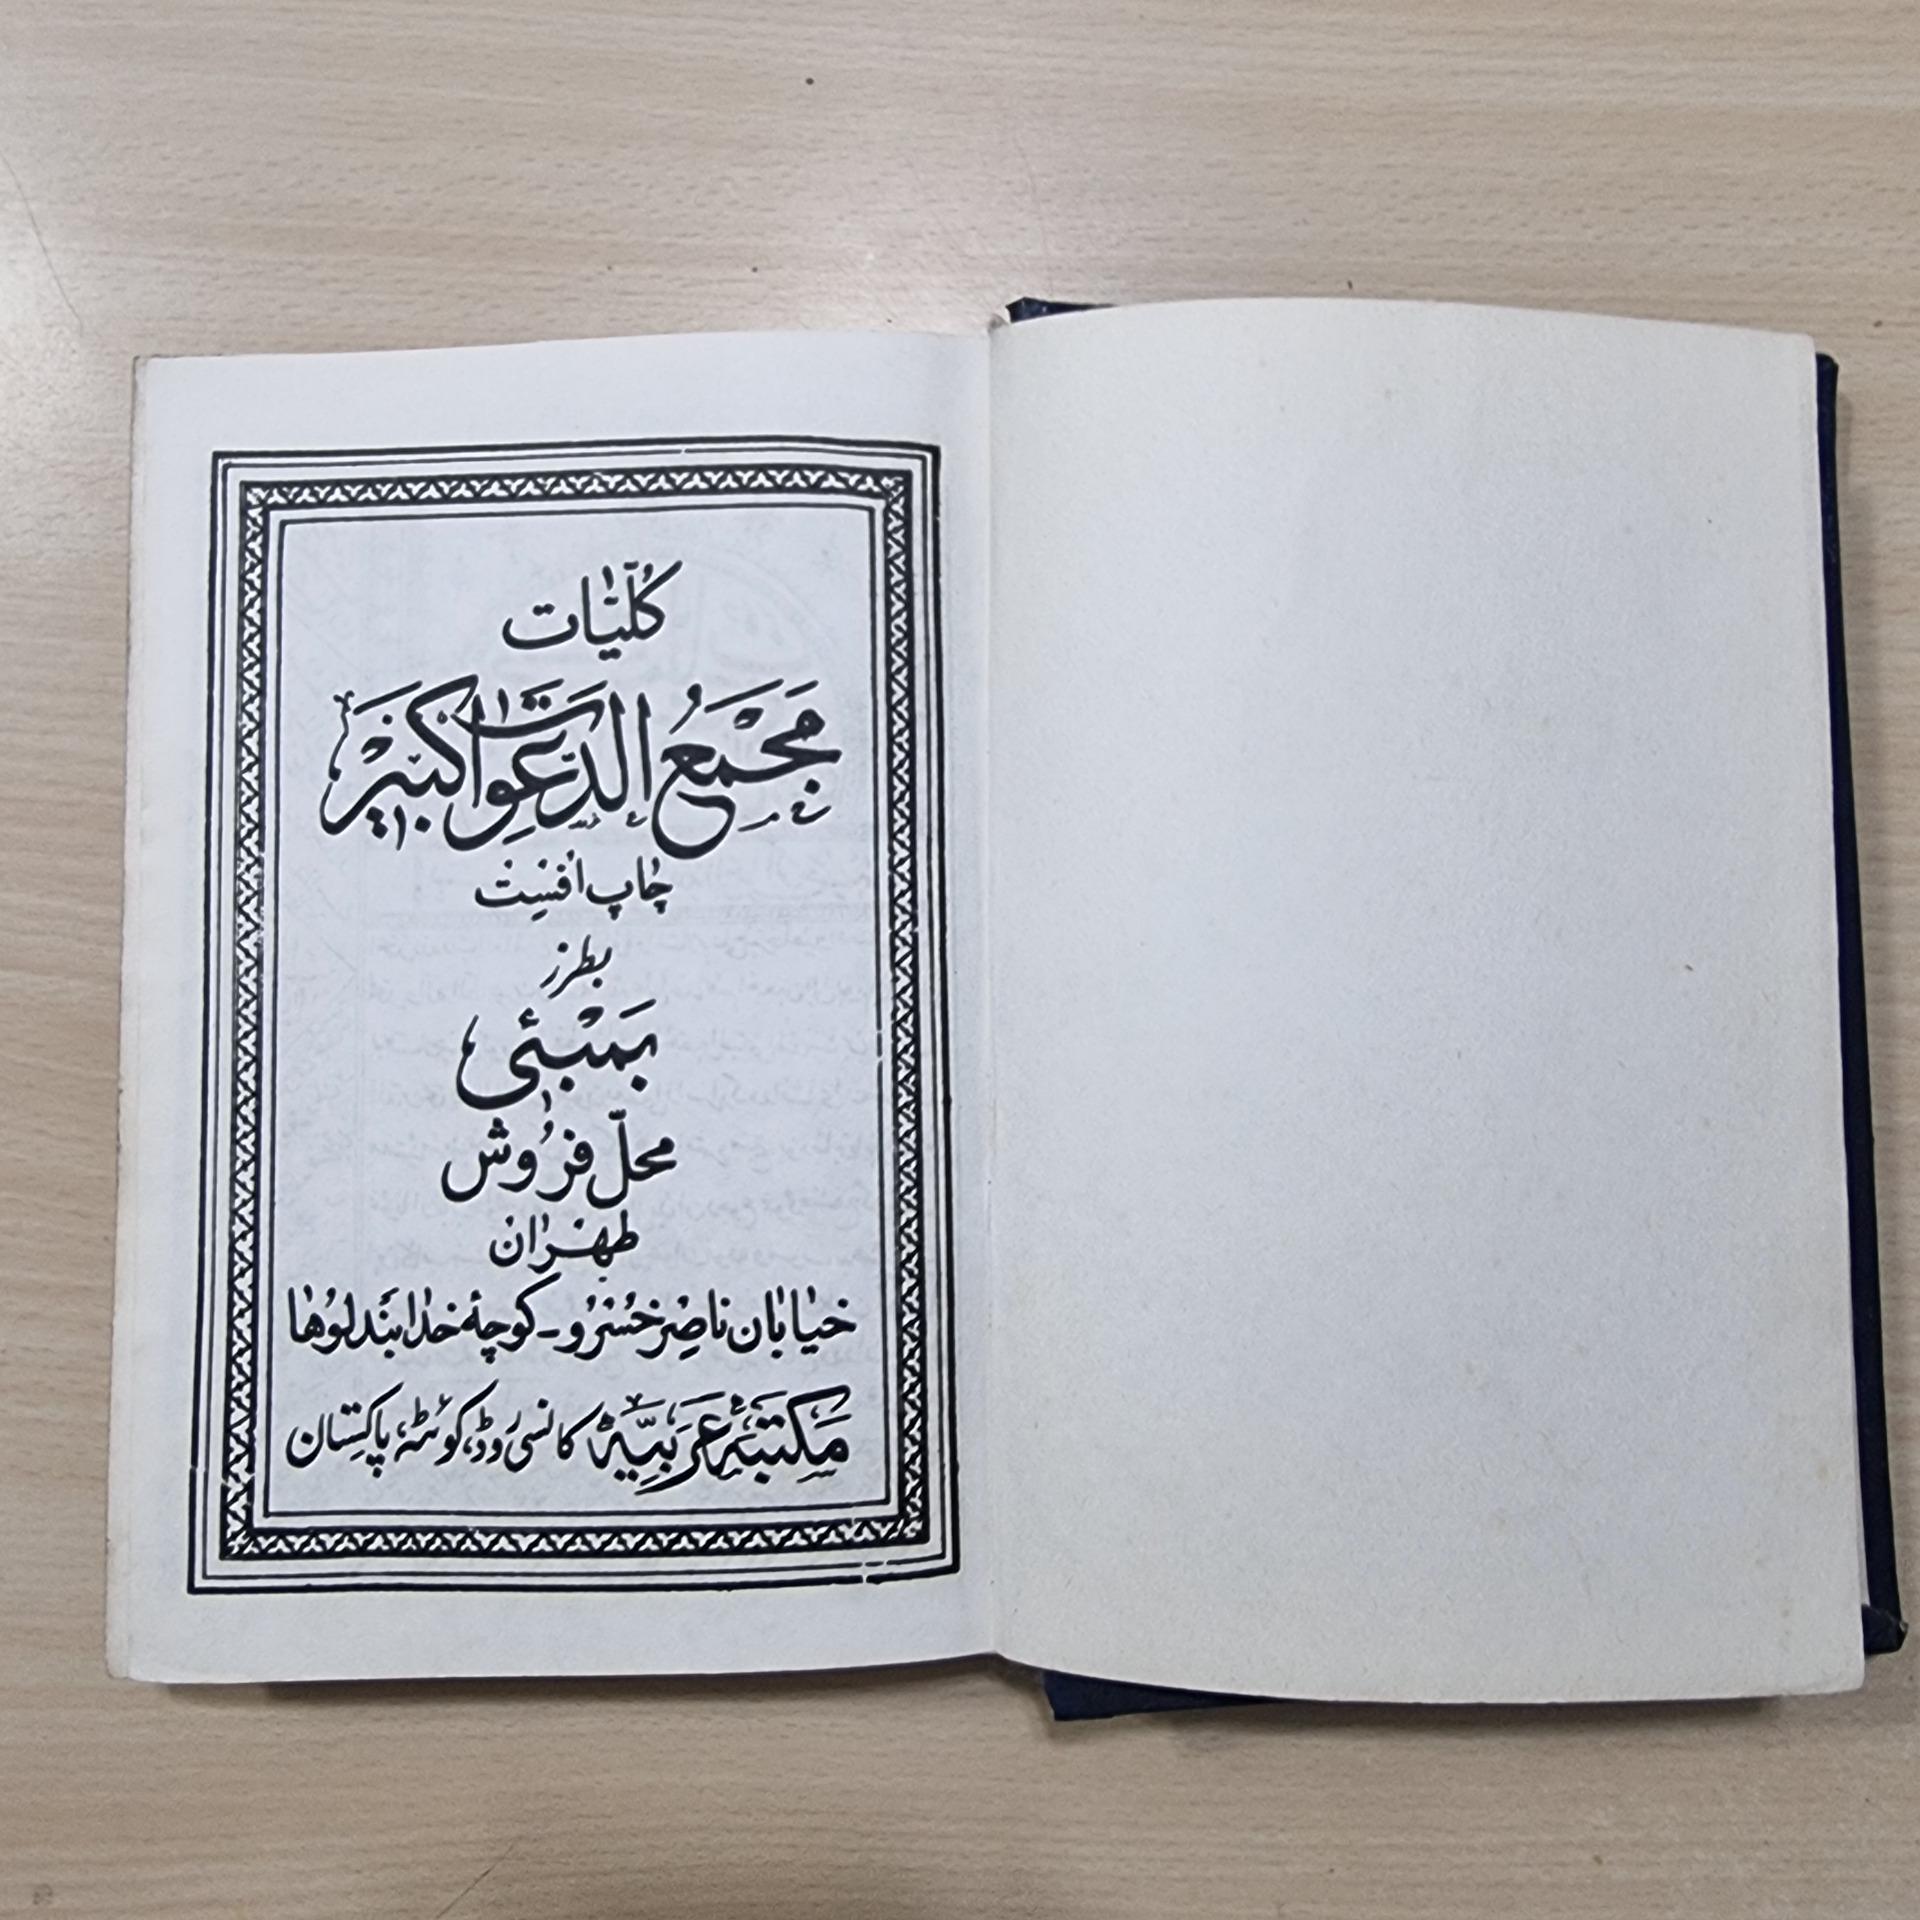 كُلّیّات
مَجْمَعُ الدَّعَوات كَبیْر
چاپ اُفسِت
بطرز
بَمْبَئی
محلّ فرُوش
طهران
خیابان ناصِر خسُرو ـ کوچهٔ خدابنده‌لوها
مَکتبَهٔ عَرَبیَّہ کانسی روڈ، کوئٹہ، پاکِستان